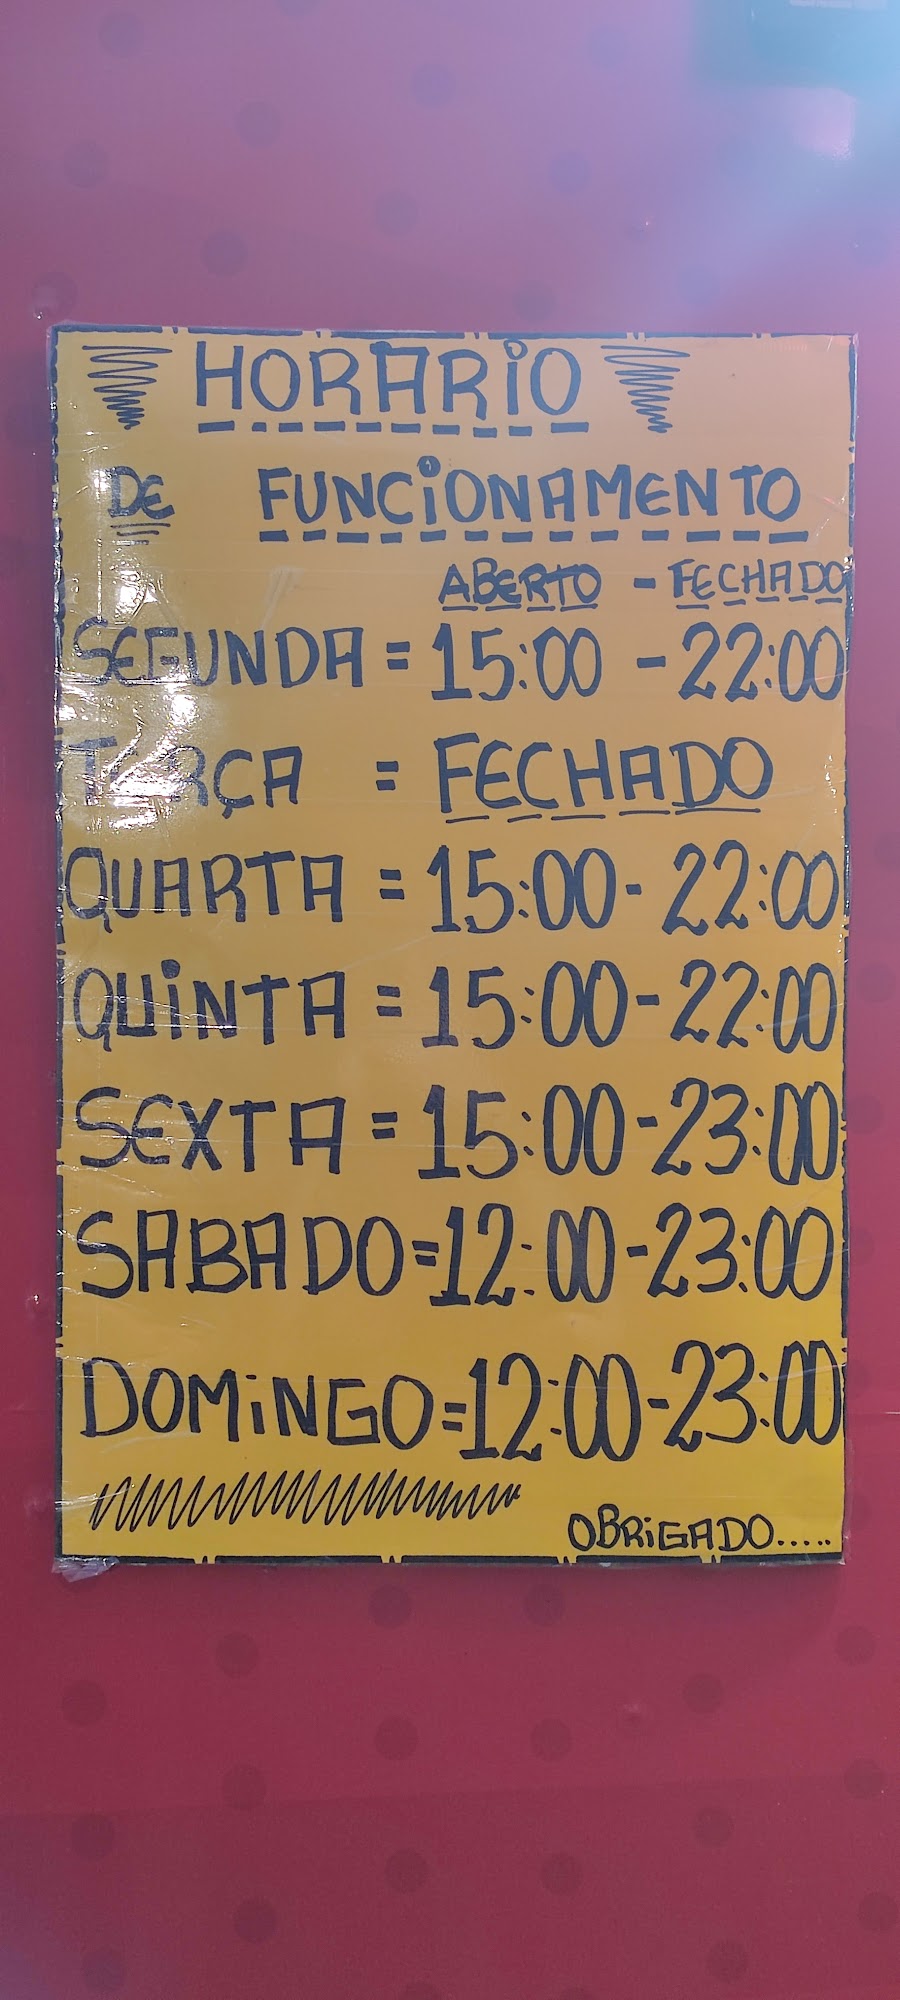 HORARiO
DE FUNCiONAMENTO
ABERTO - FECHADO
SEGUNDA = 15:00 - 22:00
TERÇA = FECHADO
QUARTA = 15:00 - 22:00
QUiNTA = 15:00 - 22:00
SEXTA = 15:00 - 23:00
SABADO = 12:00 - 23:00
DOMiNGO = 12:00 - 23:00
OBRiGADO.....